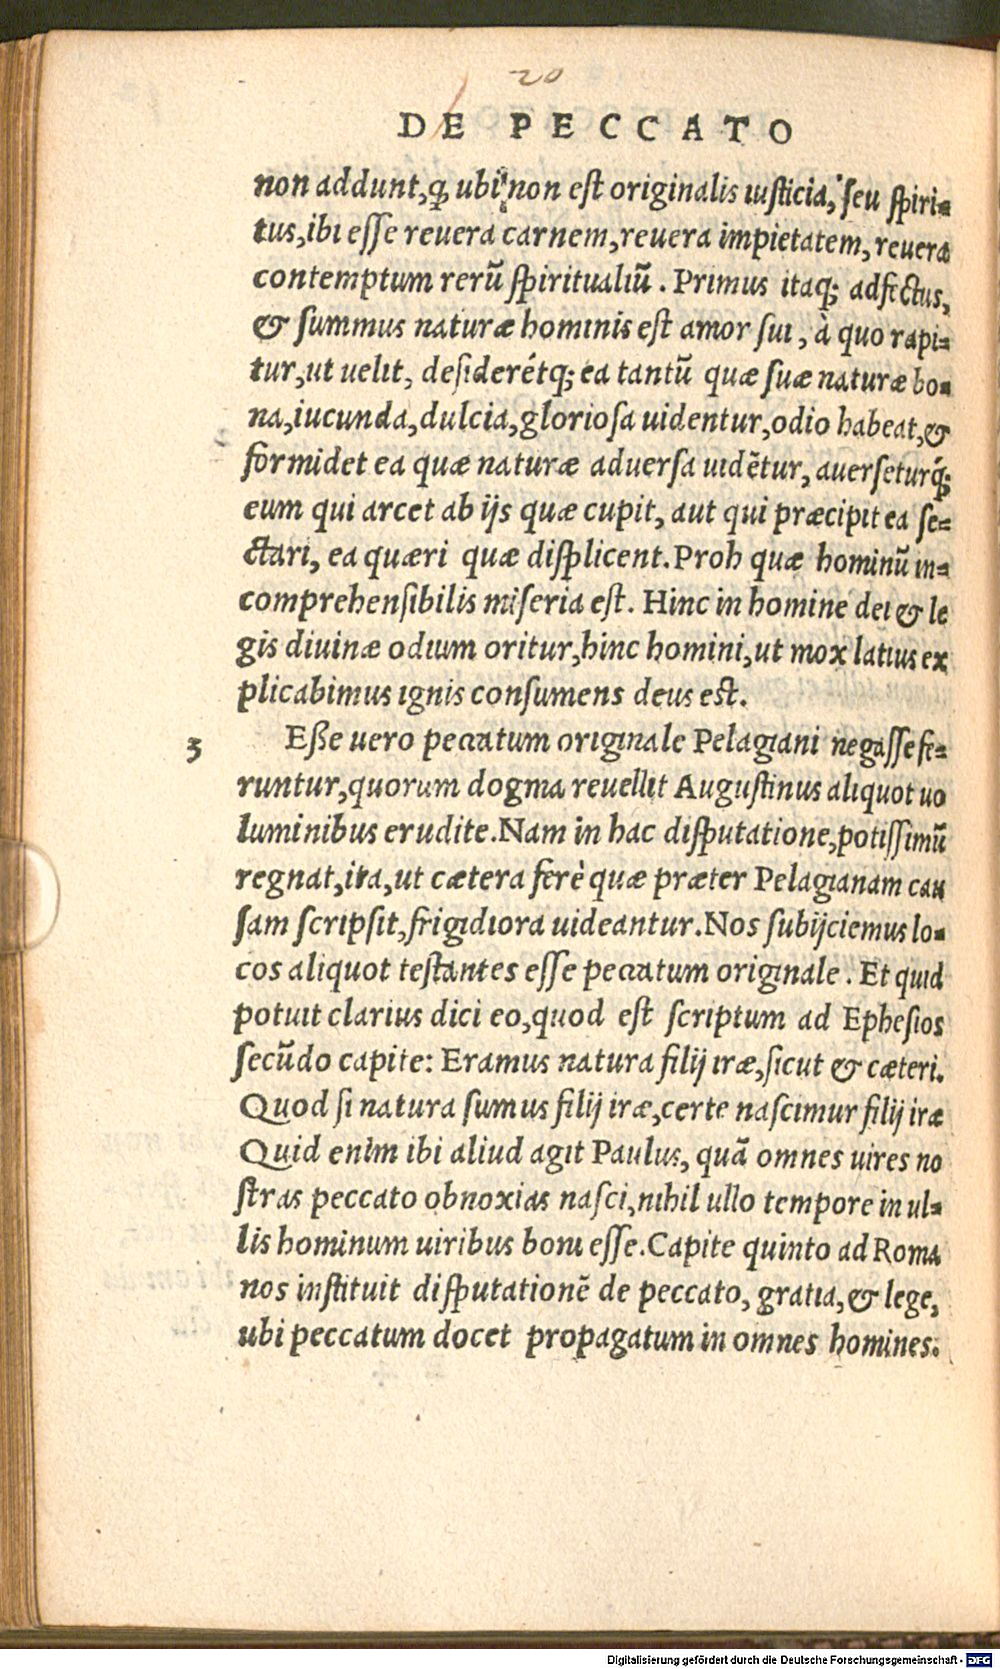 20
DE PECCATO
non addunt, ꝙ ubi non eſt originalis iuſticia, ſeu ſpiri-
tus, ibi eſſe reuera carnem, reuera impietatem, reuera
contemptum rerũ ſpiritualiũ. Primus itaq; adfectus,
& ſummus naturæ hominis eſt amor ſui, à quo rapi-
tur, ut uelit, deſiderétq; ea tantũ quæ ſuæ naturæ bo-
na, iucunda, dulcia, glorioſa uidentur, odio habeat, &
formidet ea quæ naturæ aduerſa uidẽtur, auerſeturq́;
eum qui arcet ab ijs quæ cupit, aut qui præcipit ea ſe-
ctari, ea quæri quæ diſplicent. Proh quæ hominũ in-
comprehenſibilis miſeria eſt. Hinc in homine dei & le
gis diuinæ odium oritur, hinc homini, ut mox latius ex
plicabimus ignis conſumens deus eſt.
3 Eße uero peccatum originale Pelagiani negaſſe fe-
runtur, quorum dogma reuellit Auguſtinus aliquot uo
luminibus erudite. Nam in hac diſputatione, potiſſimũ
regnat, ita, ut cætera ferè quæ præter Pelagianam cau
ſam ſcripſit, frigidiora uideantur. Nos ſubijciemus lo-
cos aliquot teſtantes eſſe peccatum originale. Et quid
potuit clarius dici eo, quod eſt ſcriptum ad Epheſios
ſecũdo capite: Eramus natura filij iræ, ſicut & cæteri.
Quod ſi natura ſumus filij iræ, certe naſcimur filij iræ
Quid enim ibi aliud agit Paulus, quã omnes uires no
ſtras peccato obnoxias naſci, nihil ullo tempore in ul-
lis hominum uiribus boni eſſe. Capite quinto ad Roma
nos inſtituit diſputationẽ de peccato, gratia, & lege,
ubi peccatum docet propagatum in omnes homines.
Digitalisierung gefördert durch die Deutsche Forschungsgemeinschaft - DFG